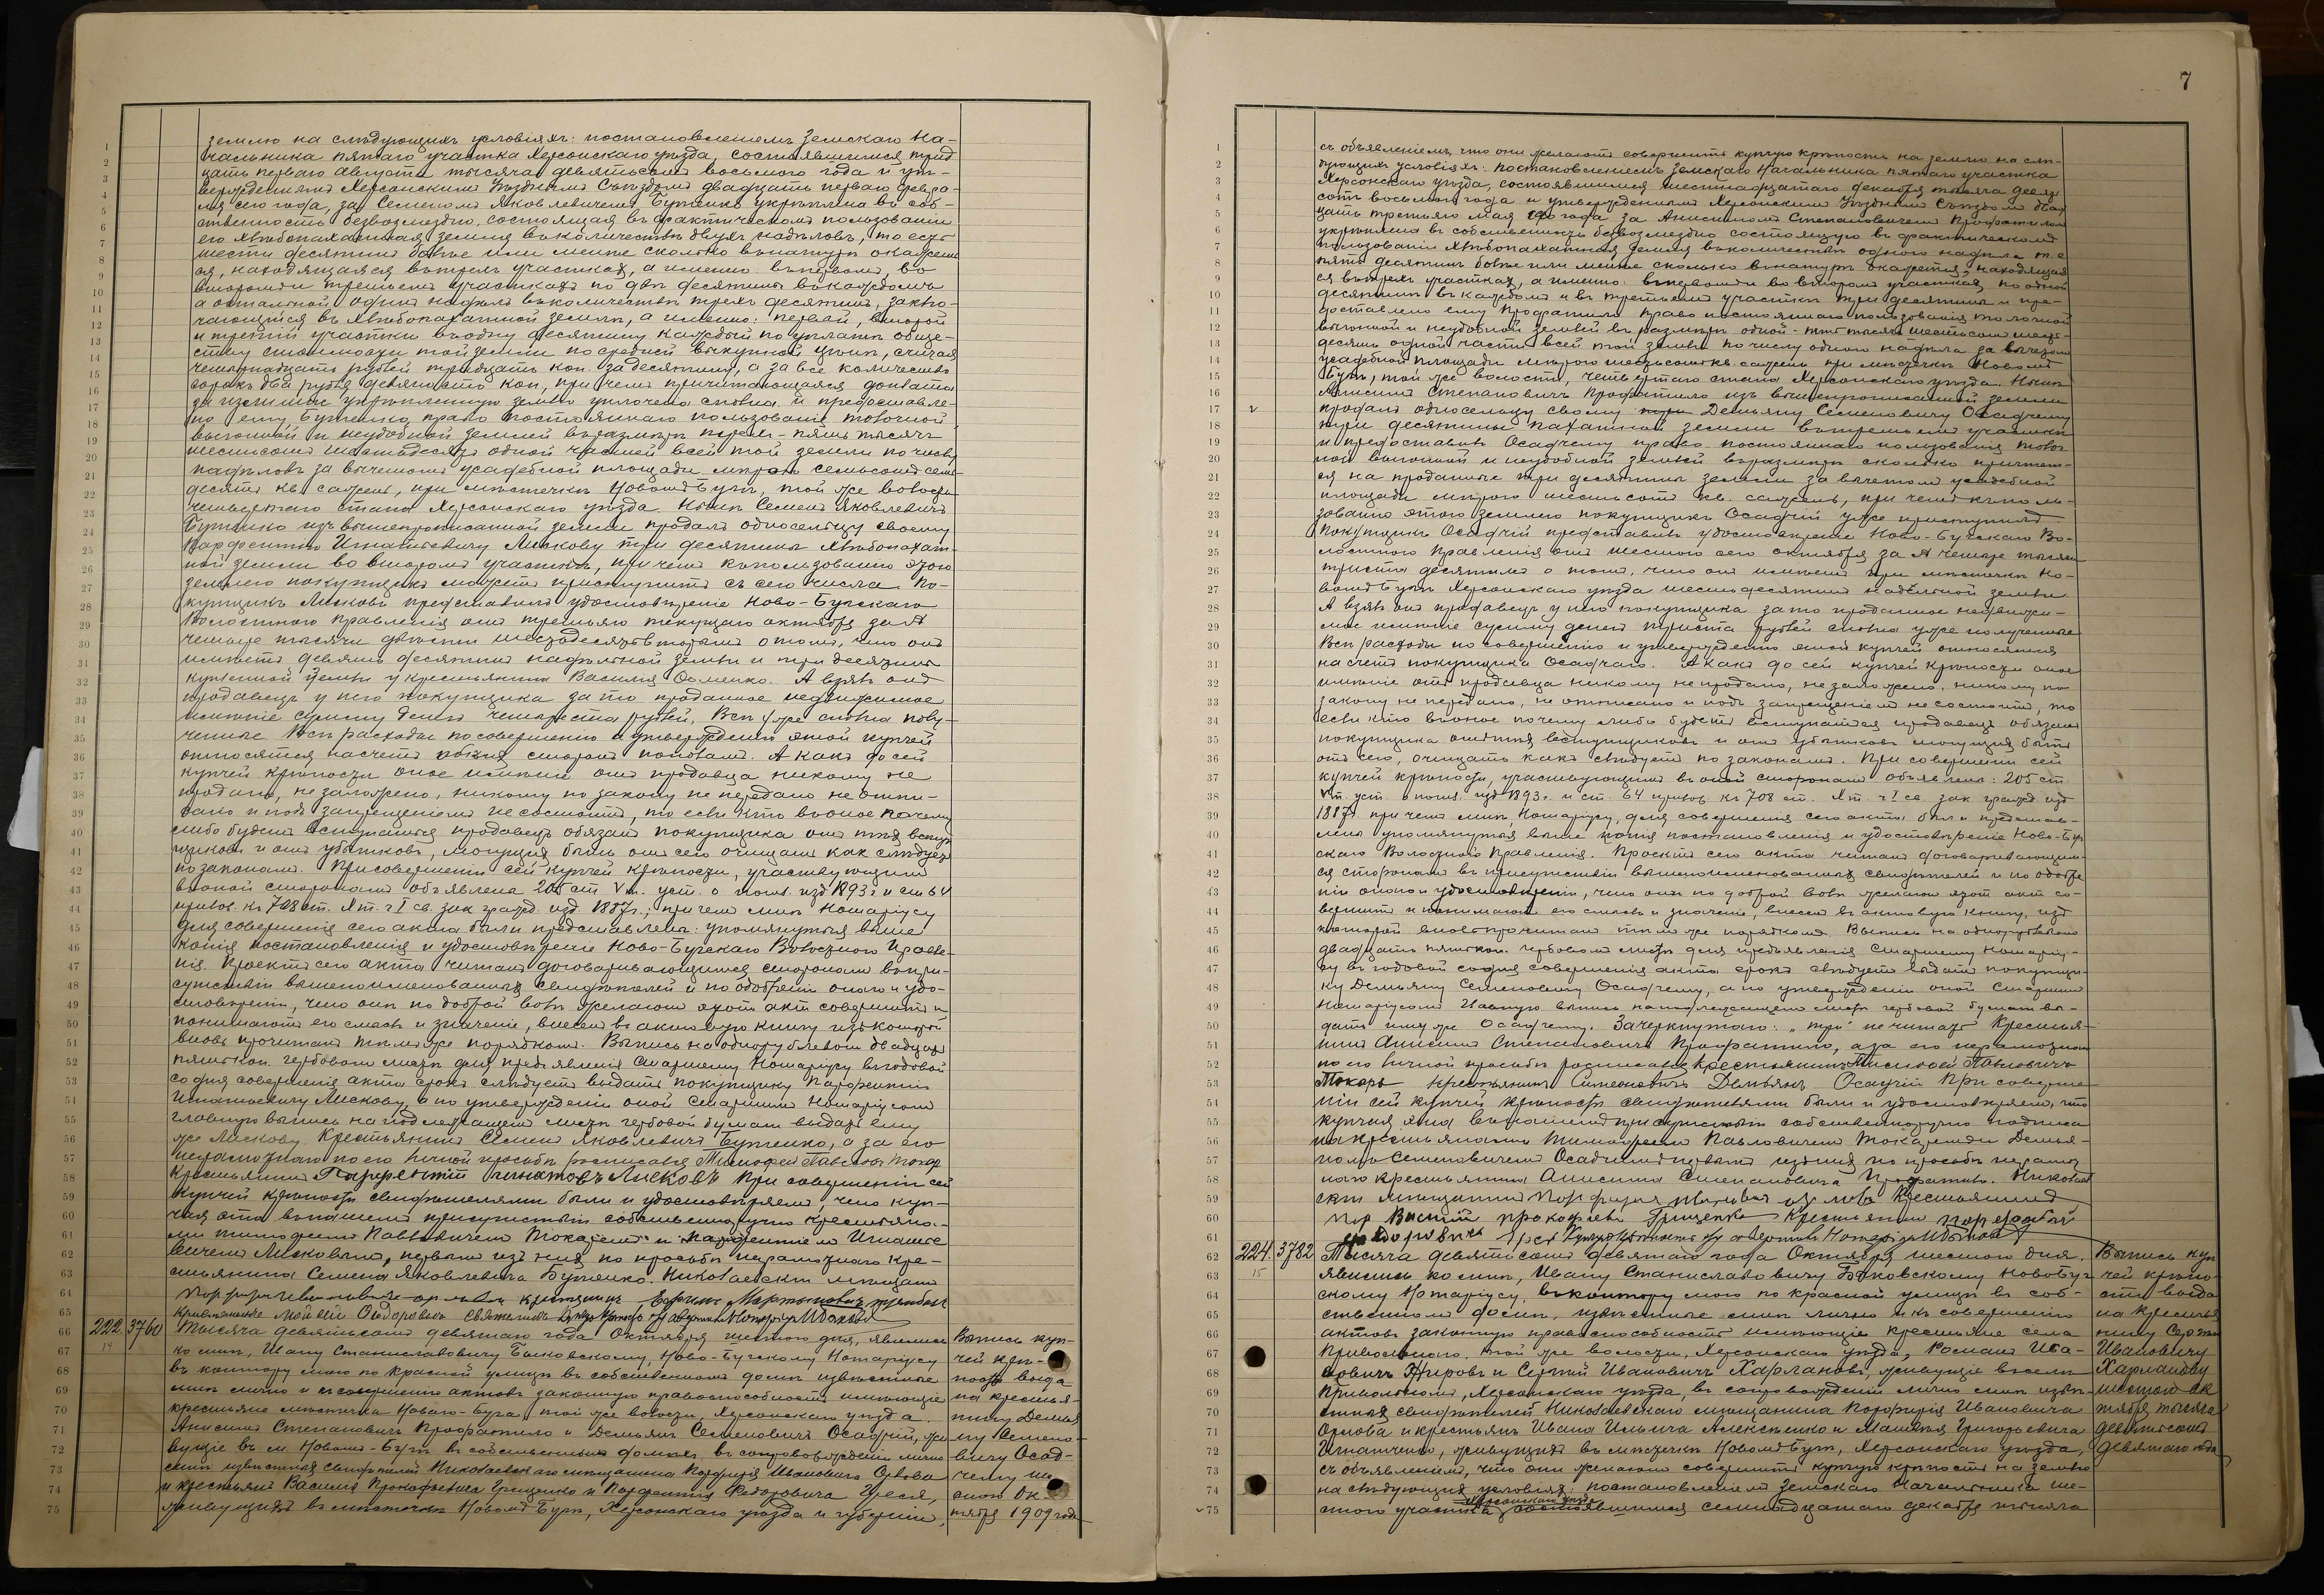 землю на слѣдующихъ условіяхъ: постановленіемъ Земскаго На-
чальника пятаго участка Херсонскаго уѣзда, состоявшимся трид
цать перваго Августа тысяча девятьсотъ восьмого года и ут-
вержденнымъ Херсонскимъ Уѣзднымъ Съѣздомъ двадцать перваго февра-
ля сего года, за Семеномъ Яковлевичемъ Бутенко укрѣплена въ соб-
ственность безвозмездно, состоящая въ фактическомъ пользованіи
его хлѣбопахатная земля въ количествѣ двухъ надѣловъ, то есть
шести десятинъ болѣе или менѣе сколько въ натурѣ окажет
ся, находящаяся въ трехъ участкахъ, а именно: въ первомъ, во
второмъ и третьемъ участкахъ по двѣ десятины въ каждомъ
а остальной одинъ надѣлъ въ количествѣ трехъ десятинъ, заклю-
чающійся въ хлѣбопахатной землѣ, а именно: первый, второй
и третій участки въ одну десятину каждый по уплатѣ обще-
ству стоимости той земли по средней выкупной цѣнѣ, считая
четырнадцать рублей тридцать коп. за десятину, а за все количество
сорокъ два рубля девяносто коп, при чемъ причитающаяся доплата
за излишне укрѣпленную землю уплочена сполна. и предоставле-
но ему, Бутенко, право постояннаго пользованія толочной
выгонной и неудобной землей въ размѣрѣ трехъ-пять тысячъ
шестисотъ шестьдесятъ одной частей всей той земли по числу
надѣловъ за вычетомъ усадебной площади мѣрою семьсотъ семь
десятъ кв. сажень, при мѣстечкѣ Новомъ Бугѣ, той же волости
четвертаго стана Херсонскаго уѣзда. Нынѣ Семенъ Яковлевичъ
Бутенко изъ вышепрописанной земли продалъ односельцу своему
Парфентію Игнатьевичу Лискову три десятины хлѣбопахат-
ной земли во второмъ участкѣ, при чемъ къ пользованію этою
землею покупщикъ можетъ приступить съ сего числа. По-
купщикъ Лисковъ представилъ удостовѣреніе Ново-Бугскаго
Волостного Правленія отъ третьяго текущаго октября за №
четыре тысячи двѣсти шестьдесятъ вторымъ о томъ, что онъ
имѣетъ девять десятинъ надѣльной земли и три десятины
купленной земли у крестьянина Василія Фоменко. А взялъ онъ
продавецъ у него покупщика за то проданное недвижимое
имѣніе сумму денегъ четыреста рублей, Всѣ уже сполна полу-
ченные Всѣ расходы по совершенію и утвержденію этой купчей
относятся на счетъ обѣихъ сторонъ пополамъ. А какъ до сей
купчей крѣпости оное имѣніе отъ продавца никому не
продано, не заложено, никому по закону не передано не отпи-
сано и подъ запрещеніемъ не состоитъ, то если кто въ оное почему
либо будетъ вступаться продавецъ обязанъ покупщика отъ тѣхъ вступ
щиковъ и отъ убытковъ, могущихъ быть отъ сего очищать какъ слѣдуетъ
по законамъ. При совершеніи сей купчей крѣпости, участвующимъ
въ оной сторонамъ объявлена 205 ст. V т. уст. о пошл. изд 1893 г и ст 64
прилож. къ 708 ст. X т. ч I св. зак гражд. изд. 1887г., при чемъ мнѣ Нотаріусу
для совершенія сего акта были представлены: упомянутыя выше
копія постановленія и удостовѣреніе Ново-Бугскаго Волостного Правле-
нія. Проектъ сего акта читанъ договаривающимся сторонамъ въ при-
сутствіи вышепоименованныхъ свидѣтелей и по одобреніи онаго и удо-
стовѣреніи, что они по доброй волѣ желаютъ этотъ актъ совершить и
понимаютъ его смыслъ и значеніе, внесенъ въ актовую книгу изъ которой
вновь прочитанъ тѣмъ же порядкомъ. Выпись на однорублевомъ двадцати
пятикоп. гербовомъ листѣ для предъявленія Старшему Нотаріусу въ годовой
со дня совершенія акта срокъ слѣдуетъ выдать покупщику Парфентію
Игнатьевичу Лискову, а по утвержденіи оной Старшимъ Нотаріусомъ
главную выпись на надлежащемъ листѣ гербовой бумаги выдать ему
же Лискову Крестьянинъ Семенъ Яковлевичъ Бутенко, а за его
неграмотнаго по его личной просьбѣ росписался Тимофей Павловъ Токарь
Крестьянинъ Парфентій Игнатовъ Лисковъ При совершеніи сей
купчей крѣпости свидѣтелями были и удостовѣряемъ, что куп-
чая эта въ нашемъ присутствіи собственноручно крестьяна-
ми Тимофеемъ Павловичемъ Токаремъ и Парфентіемъ Игнатье
вичемъ Лисковымъ, первымъ изъ нихъ по просьбѣ неграмотнаго кре-
стьянина Семена Яковлевича Бутенко. Николаевскій мѣщанинъ
Порфирій Ивановичъ Орловъ крестьянинъ Ефимъ Мартыновичъ
Крестьянинъ Мойсей Федоровичъ
222. 3760 Тысяча девятьсотъ девятаго года Октября шестого дня, явились
ко мнѣ, Ивану Станиславовичу Быковскому, Ново-Бугскому Нотаріусу
въ контору мою по Красной улицѣ въ собственномъ домѣ извѣстные
мнѣ лично и къ совершенію актовъ законную правоспособность имѣющіе
крестьяне мѣстечка Новаго-Буга, той же волости, Херсонскаго уѣзда.
Анисимъ Степановичъ Профатило и Демьянъ Семеновичъ Осадчій, жи
вущіе въ м. Новомъ-Бугѣ въ собственныхъ домахъ, въ сопровожденіи лично
мнѣ извѣстныхъ свидѣтелей Николаевскаго мѣщанина Порфирія Ивановича Орлова
и крестьянъ Василія Прокофьевича Гриценко и Парфентія Федоровича Греся,
живущихъ въ мѣстечкѣ Новомъ Бугѣ, Херсонскаго уѣзда и губерніи,
Выпись куп-
чей крѣ-
пости выда
на крестья-
нину Демья
ну Семено-
вичу Осад-
чему ше
стого Ок-
тября 1909 года
7
съ объявленіемъ, что они желаютъ совершить купчую крѣпость на землю на слѣ-
дующихъ условіяхъ: постановленіемъ Земскаго Начальника пятаго участка
Херсонскаго уѣзда, состоявшимся шестнадцатаго декабря тысяча девять
сотъ восьмого года и утвержденнымъ Херсонскимъ Уѣзднымъ Съѣздомъ двад
цать третьяго мая 1909 года за Анисимомъ Степановичемъ Профатиломъ
укрѣплена въ собственность безвозмездно состоящую въ фактическомъ
пользованіи хлѣбопахатная земля въ количествѣ одного надѣла т.е
пять десятинъ болѣе или менѣе сколько въ натурѣ окажется, находящая
ся въ трехъ участкахъ, а именно: въ первомъ и во второмъ участкахъ по одной
десятинѣ въ каждомъ и въ третьемъ участкѣ три десятины и пре-
доставлено ему Профатилѣ право постояннаго пользованія толочной
выгонной и неудобной землей въ размѣрѣ одной-пять тысячъ шестьсотъ шесть-
десятъ одной части всей той земли по числу одного надѣла за вычетомъ
усадебной площади мѣрою шестьсотъ кв. сажень при мѣстечкѣ Новомъ
Бугѣ, той же волости, четвертаго стана Херсонскаго уѣзда. Нынѣ
Анисимъ Степановичъ Профатило изъ вышепрописанной земли
продалъ односельцу своему три Демьяну Семеновичу Осадчему
три десятины пахатной земли въ третьемъ участкѣ
и предоставилъ Осадчему право постояннаго пользованія толоч
ной выгонной и неудобной землей въ размѣрѣ сколько причтет-
ся на проданные три десятины земли за вычетомъ усадебной
площади мѣрою шестьсотъ кв. сажень, при чемъ къ поль-
зованію этою землею покупщикъ Осадчій уже приступилъ.
Покупщикъ Осадчій представилъ удостовѣреніе Ново-Бугскаго Во-
лостного Правленія отъ шестого сего октября за № четыре тысячи
триста десятымъ о томъ, что онъ имѣетъ при мѣстечкѣ Но-
вомъ Бугѣ Херсонскаго уѣзда шесть десятинъ надѣльной земли.
А взялъ онъ продавецъ у него покупщика за то проданное недвижи-
мое имѣніе сумму денегъ триста рублей сполна уже полученные
Всѣ расходы по совершенію и утвержденію этой купчей относятся
на счетъ покупщика Осадчаго. А какъ до сей купчей крѣпости оное
имѣніе отъ продавца никому не продано, не заложено, никому по
закону не передано, не отписано и подъ запрещеніемъ не состоитъ, то
если кто въ оное почему либо будетъ вступаться продавецъ обязанъ
покупщика отъ тѣхъ вступщиковъ и отъ убытковъ могущихъ быть
отъ сего, очищать какъ слѣдуетъ по законамъ. При совершеніи сей
купчей крѣпости, участвующимъ въ оной сторонамъ объявлена: 205 ст.
V т. уст. о пошл. изд 1893 г. и ст. 64 прилож. къ 708 ст. X т. ч I св. зак гражд изд
1887г. при чемъ мнѣ, Нотаріусу, для совершенія сего акта были представ-
лены упомянутыя выше копія постановленія и удостовѣреніе Ново-Буг
скаго Волостного Правленія. Проектъ сего акта читанъ договаривающим-
ся сторонамъ въ присутствіи вышепоименованныхъ свидѣтелей и по одобре
ніи онаго и удостовѣреніи, что они по доброй волѣ желаютъ этотъ актъ со-
вершить и понимаютъ его смыслъ и значеніе, внесенъ въ актовую книгу, изъ
которой вновь прочитанъ тѣмъ же порядкомъ. Выпись на однорублевомъ
двадцать пятикоп. гербовомъ листѣ для предъявленія Старшему Нотаріу-
су въ годовой со дня совершенія акта срокъ слѣдуетъ выдать покупщи-
ку Демьяну Семеновичу Осадчему, а по утвержденіи оной Старшимъ
Нотаріусомъ Главную выпись на надлежащемъ листѣ гербовой бумаги вы-
дать ему же Осадчему. Зачеркнутаго: „три" не читать Крестья-
нинъ Анисимъ Степановичъ Профатило, а за его неграмотнаго
по его личной просьбѣ росписался Крестьянинъ Тимофей Павловичъ
Токарь Крестьянинъ Симеоновичъ Демьянъ Осадчій При соверше-
ніи сей купчей крѣпости свидѣтелями были и удостовѣряемъ, что
купчая эта въ нашемъ присутствіи собственноручно подписа
на крестьянами Тимофеемъ Павловичемъ Токаремъ и Демья-
номъ Семеновичемъ Осадчимъ первымъ изъ нихъ по просьбѣ неграмот
наго крестьянина Анисима Степановича Профатило. Николаев
скій мѣщанинъ Порфирій Ивановичъ Орловъ Крестьянинъ
Василій Прокофьевъ Гриценко Крестьянинъ
Федоровичъ
224. 3782 Тысяча девятьсотъ девятаго года Октября шестого дня.
явились ко мнѣ, Ивану Станиславовичу Быковскому Новобуг
скому Нотаріусу, въ контору мою по Красной улицѣ въ соб-
ственномъ домѣ, извѣстные мнѣ лично и къ совершенію
актовъ законную правоспособность имѣющіе крестьяне села
Привольнаго, той же волости, Херсонскаго уѣзда, Романъ Ива-
новичъ Жировъ и Сергѣй Ивановичъ Харлановъ, живущіе въ селѣ
Привольномъ, Херсонскаго уѣзда, въ сопровожденіи лично мнѣ извѣ-
стныхъ свидѣтелей Николаевскаго мѣщанина Порфирія Ивановича
Орлова и крестьянъ Ивана Ильича Алексѣенко и Матвѣя Григорьевича
Игнатенко, живущихъ въ мѣстечкѣ Новомъ Бугѣ, Херсонскаго уѣзда,
съ объявленіемъ, что они желаютъ совершить купчую крѣпость на землю
на слѣдующихъ условіяхъ: постановленіемъ Земскаго Начальника ше-
Херсонскаго уѣзда
стого участка состоявшимся семнадцатаго декабря тысяча
Выпись куп
чей крѣпо-
сти выда
на крестья
нину Сергѣю
Ивановичу
Харланову
шестого Ок
тября тысяча
девятьсотъ
девятаго года